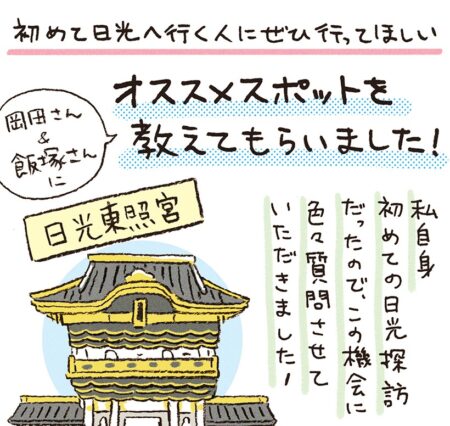 初めて日光へ行く人にぜひ行ってほしい
岡田さん
&
飯塚さん
に
オススメスポットを
教えてもらいました！
日光東照宮
私自身
初めての日光探訪
だったので、この機会に
色々質問させて
いただきました！